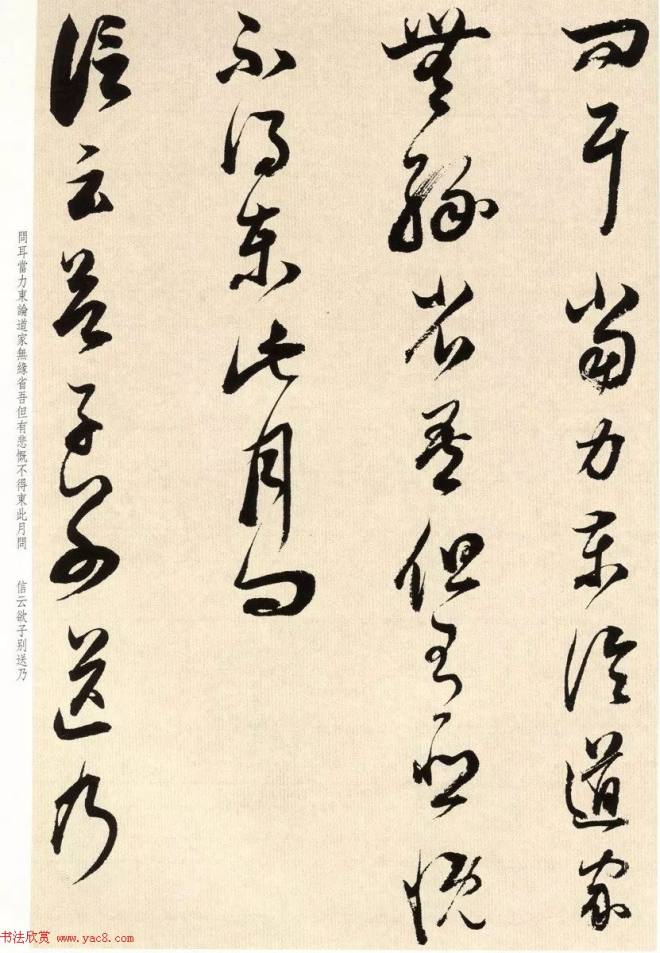 問耳當力東論道家
無緣省吾但有悲慨
不得東此月問
信云欲子別送乃
問耳當力東論道家無緣省吾但有悲慨不得東此月問　信云欲子別送乃
书法欣赏 www.yac8.com